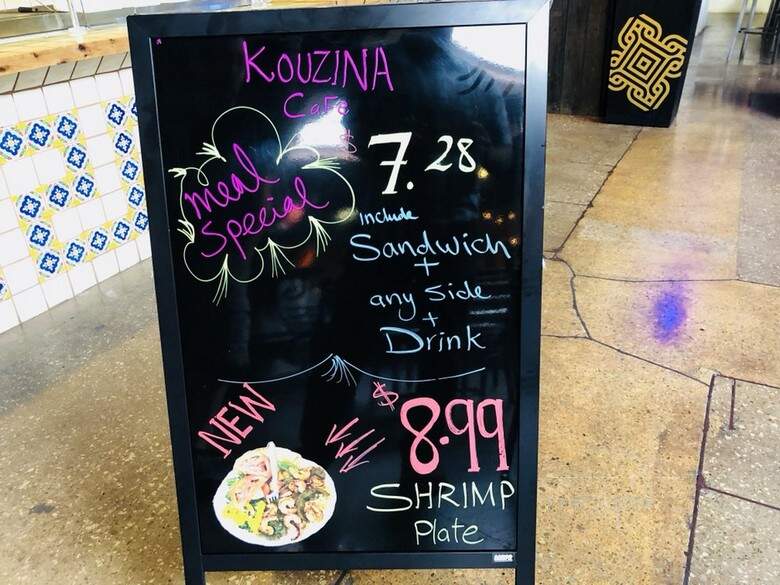 KOUZINA
Cafe
meal
special
$7.28
include
Sandwich
+
any side
+
Drink
NEW
$8.99
SHRIMP
Plate